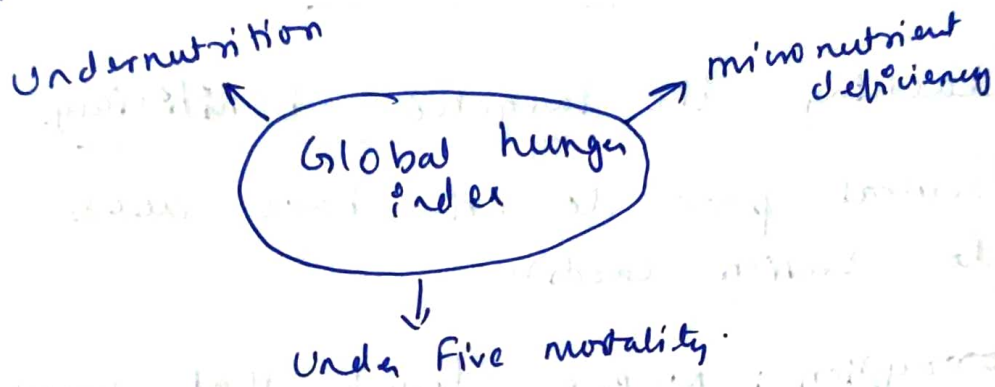 Undernutrition
micronutrient
deficiency
Global hunger
index
Under Five mortality.